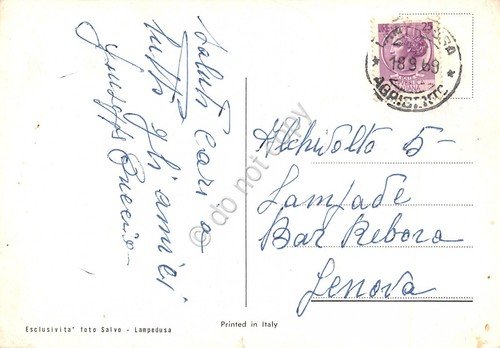 Saluti Cari a
tutti gli amici
Giuseppe
25
LAMPEDUSA
18 9 69
AGRIGENTO
Archivolto 5-
Lampade
Bar Rebora
Genova
Esclusività foto Salvo - Lampedusa
Printed in Italy
do not copy